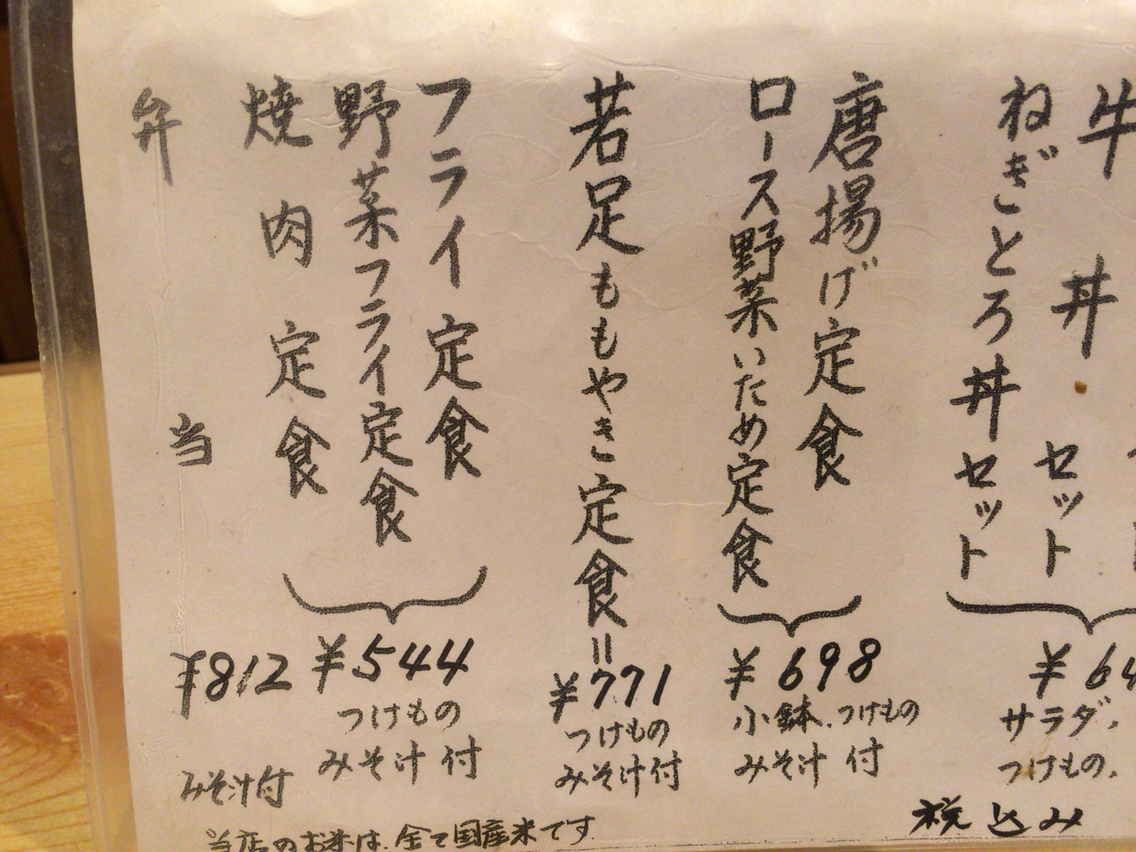 牛丼セット
ねぎとろ丼セット
¥64
サラダ、
つけもの、
唐揚げ定食
ロース野菜いため定食
¥698
小鉢、つけもの
みそ汁付
若足ももやき定食=
¥771
つけもの
みそ汁付
フライ定食
野菜フライ定食
焼肉定食
¥544
つけもの
みそ汁付
弁当
¥812
みそ汁付
税込み
当店のお米は、全て国産米です